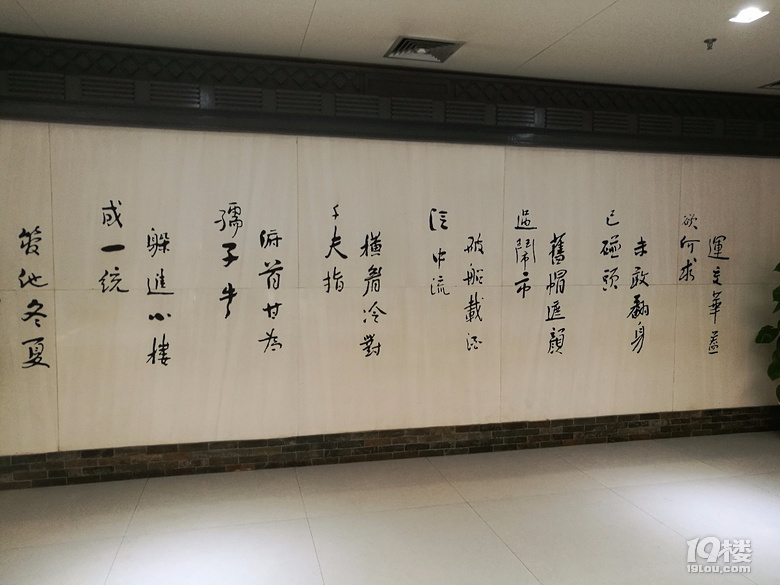 運交華蓋
欲何求
未敢翻身
已碰頭
舊帽遮顏
過鬧市
破船載酒
泛中流
橫眉冷對
千夫指
俯首甘為
孺子牛
躲進小樓
成一統
管他冬夏
19楼
19lou.com